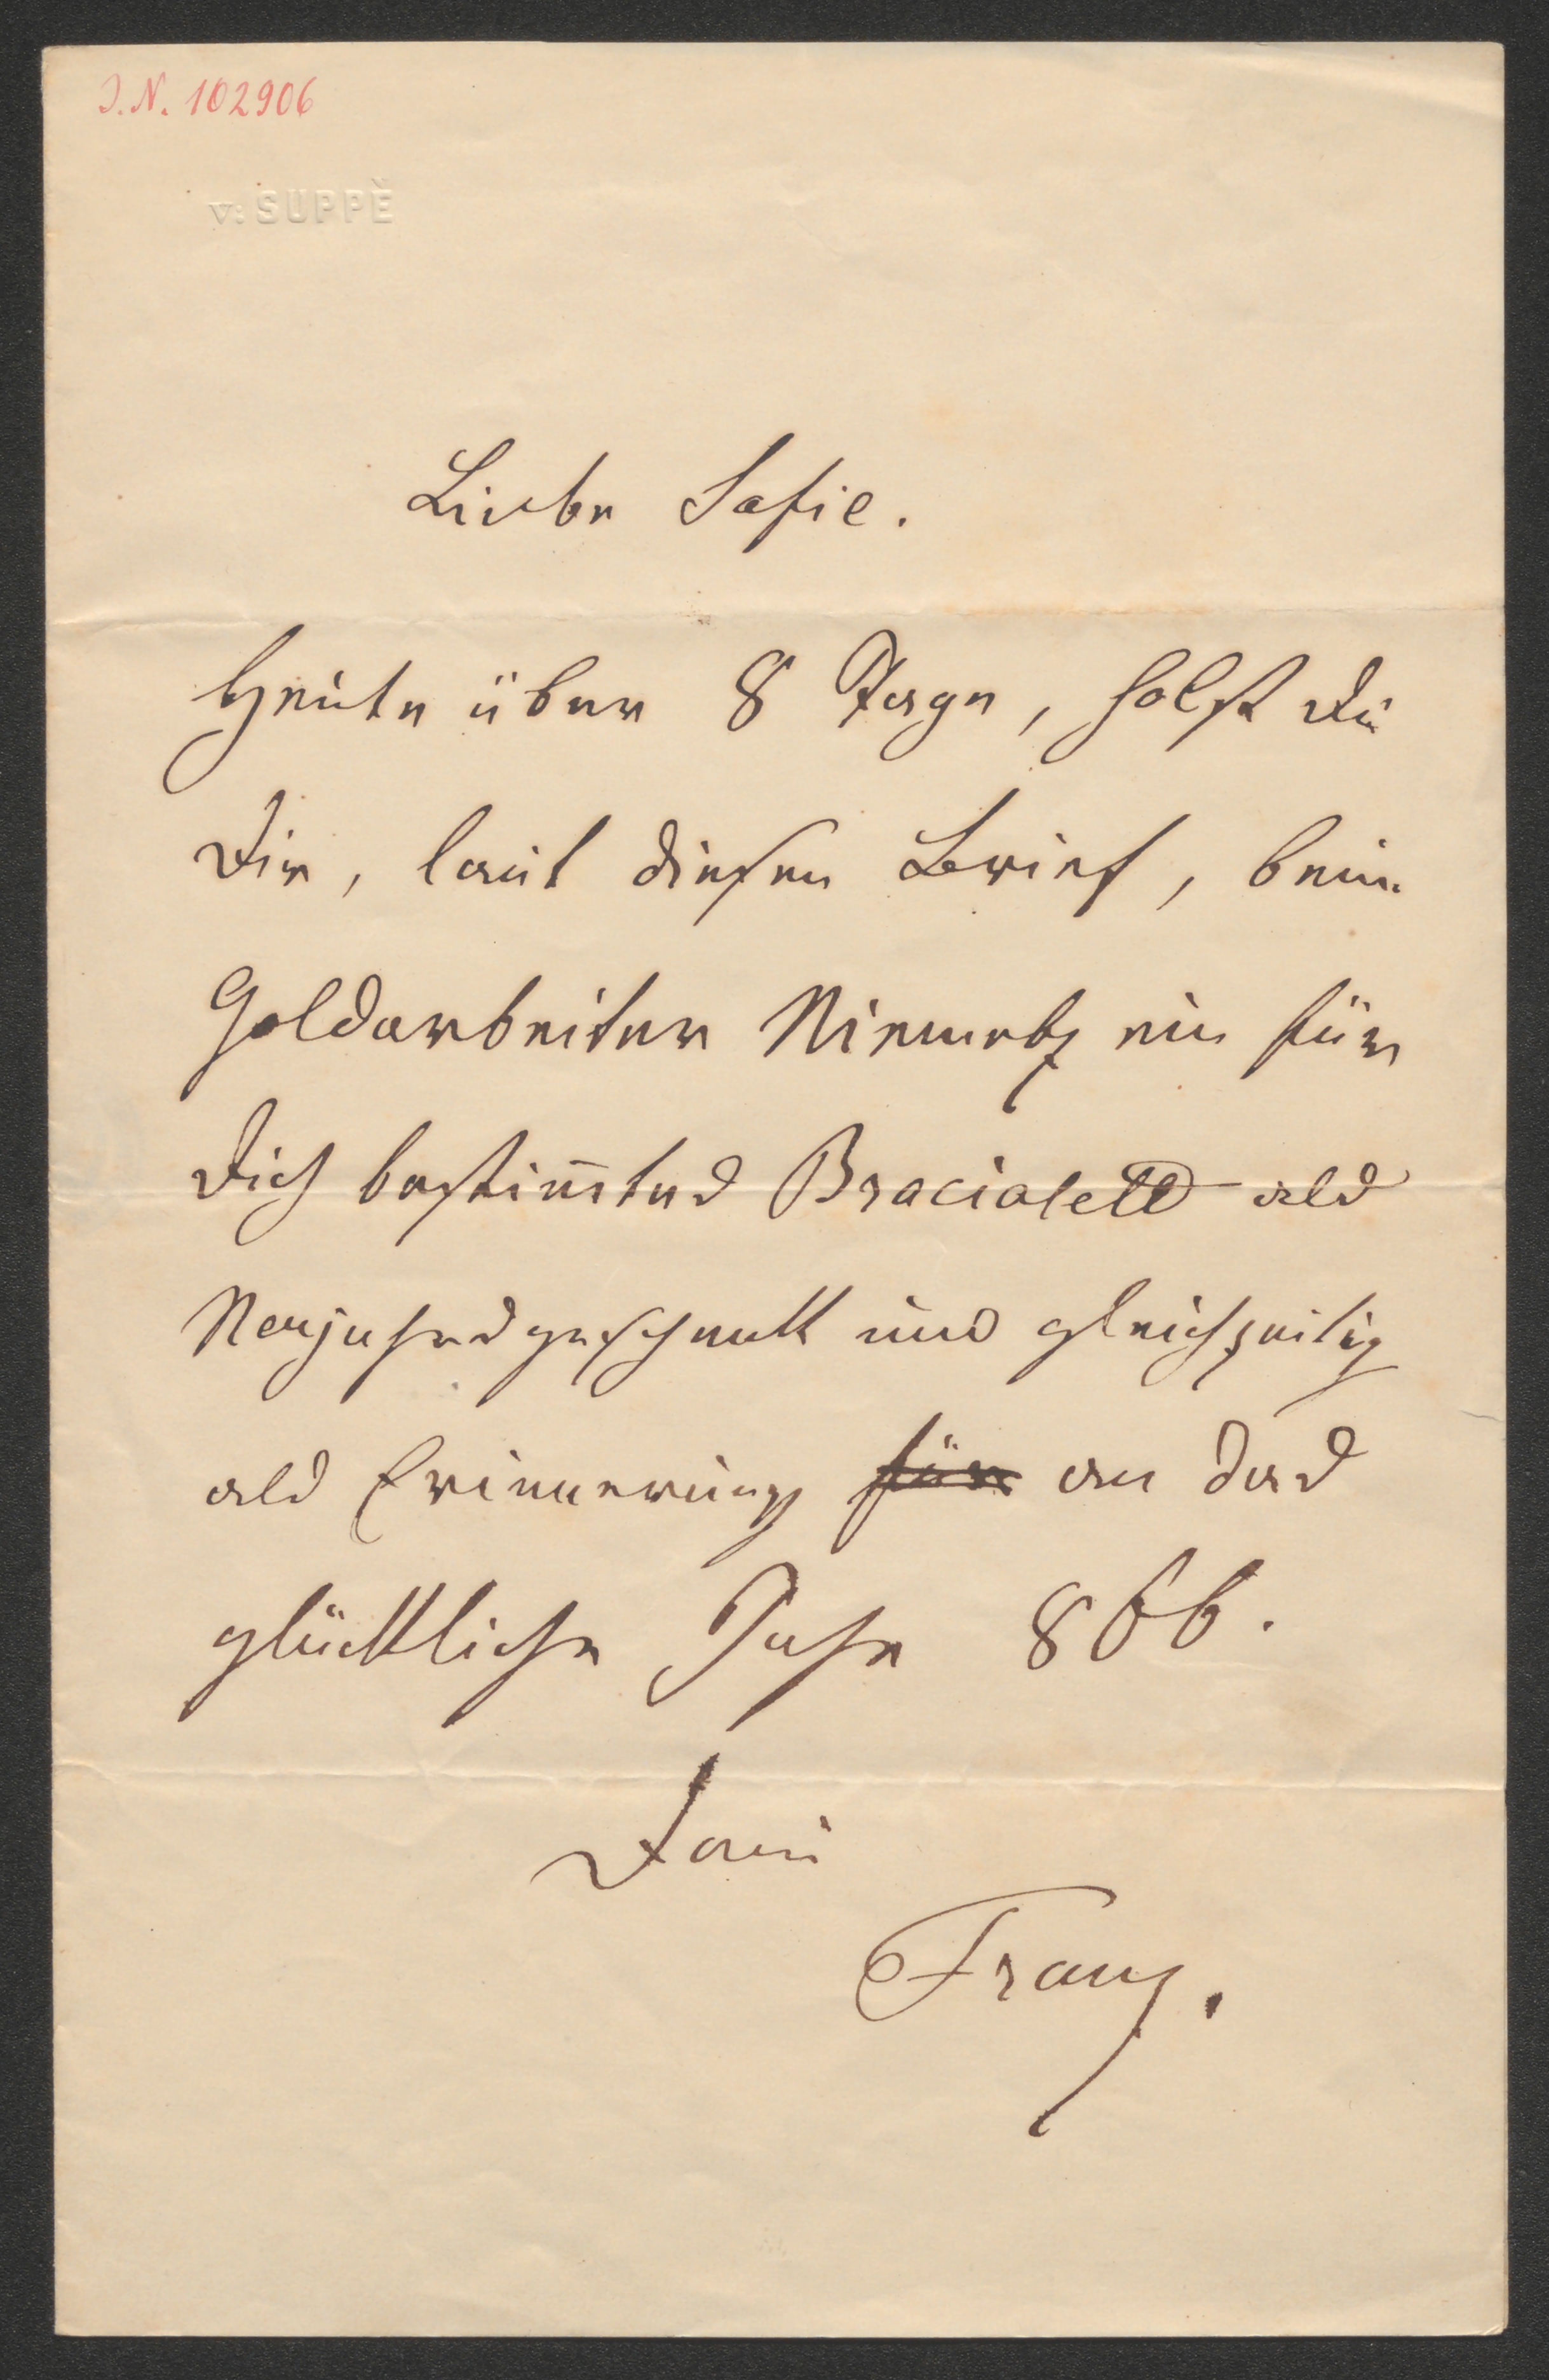 I.N. 102906
v: SUPPÈ
Liebe Sofie.
Heute über 8 Tage, holst Du
Dir, laut diesen Brief, beim
Goldarbeiter Niemetz ein für
Dich bestim̅tes Bracialett als
Neujahrsgeschenk und gleichzeitig
als Erinnerung für an das
glückliche Jahr 866.
Dein
Franz.